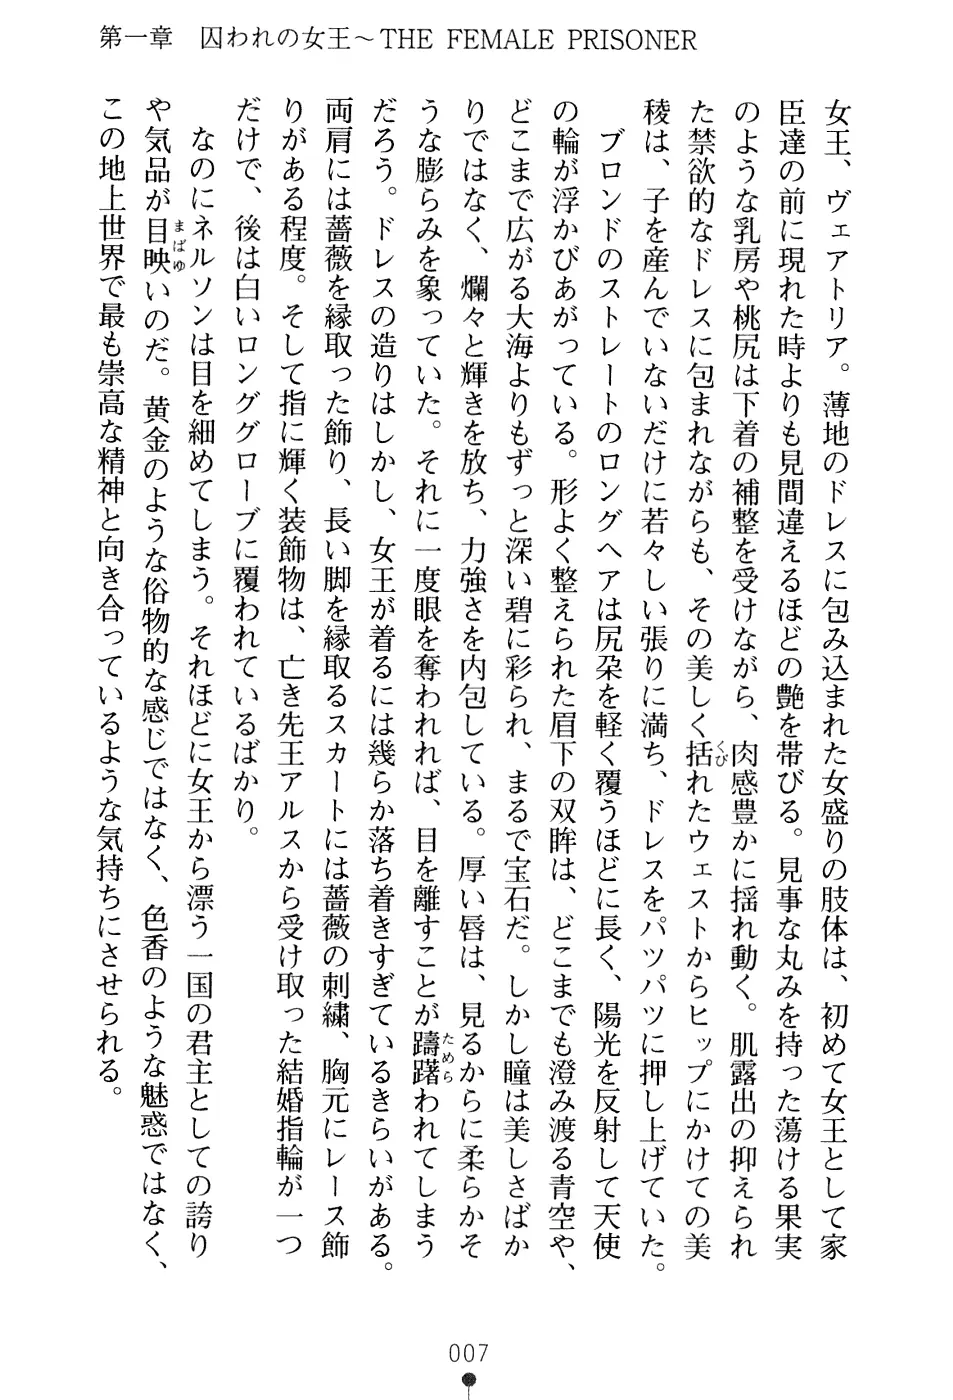 第一章　囚われの女王～THE FEMALE PRISONER
女王、ヴェアトリア。薄地のドレスに包み込まれた女盛りの肢体は、初めて女王として家
臣達の前に現れた時よりも見間違えるほどの艶を帯びる。見事な丸みを持った蕩ける果実
のような乳房や桃尻は下着の補整を受けながら、肉感豊かに揺れ動く。肌露出の抑えられ
た禁欲的なドレスに包まれながらも、その美しく括れたウェストからヒップにかけての美
稜は、子を産んでいないだけに若々しい張りに満ち、ドレスをパツパツに押し上げていた。
　ブロンドのストレートのロングヘアは尻朶を軽く覆うほどに長く、陽光を反射して天使
の輪が浮かびあがっている。形よく整えられた眉下の双眸は、どこまでも澄み渡る青空や、
どこまで広がる大海よりもずっと深い碧に彩られ、まるで宝石だ。しかし瞳は美しさばか
りではなく、爛々と輝きを放ち、力強さを内包している。厚い唇は、見るからに柔らかそ
うな膨らみを象っていた。それに一度眼を奪われれば、目を離すことが躊躇われてしまう
だろう。ドレスの造りはしかし、女王が着るには幾らか落ち着きすぎているきらいがある。
両肩には薔薇を縁取った飾り、長い脚を縁取るスカートには薔薇の刺繍、胸元にレース飾
りがある程度。そして指に輝く装飾物は、亡き先王アルスから受け取った結婚指輪が一つ
だけで、後は白いロンググローブに覆われているばかり。
　なのにネルソンは目を細めてしまう。それほどに女王から漂う一国の君主としての誇り
や気品が目映いのだ。黄金のような俗物的な感じではなく、色香のような魅惑ではなく、
この地上世界で最も崇高な精神と向き合っているような気持ちにさせられる。
くび
ためら
まばゆ
007